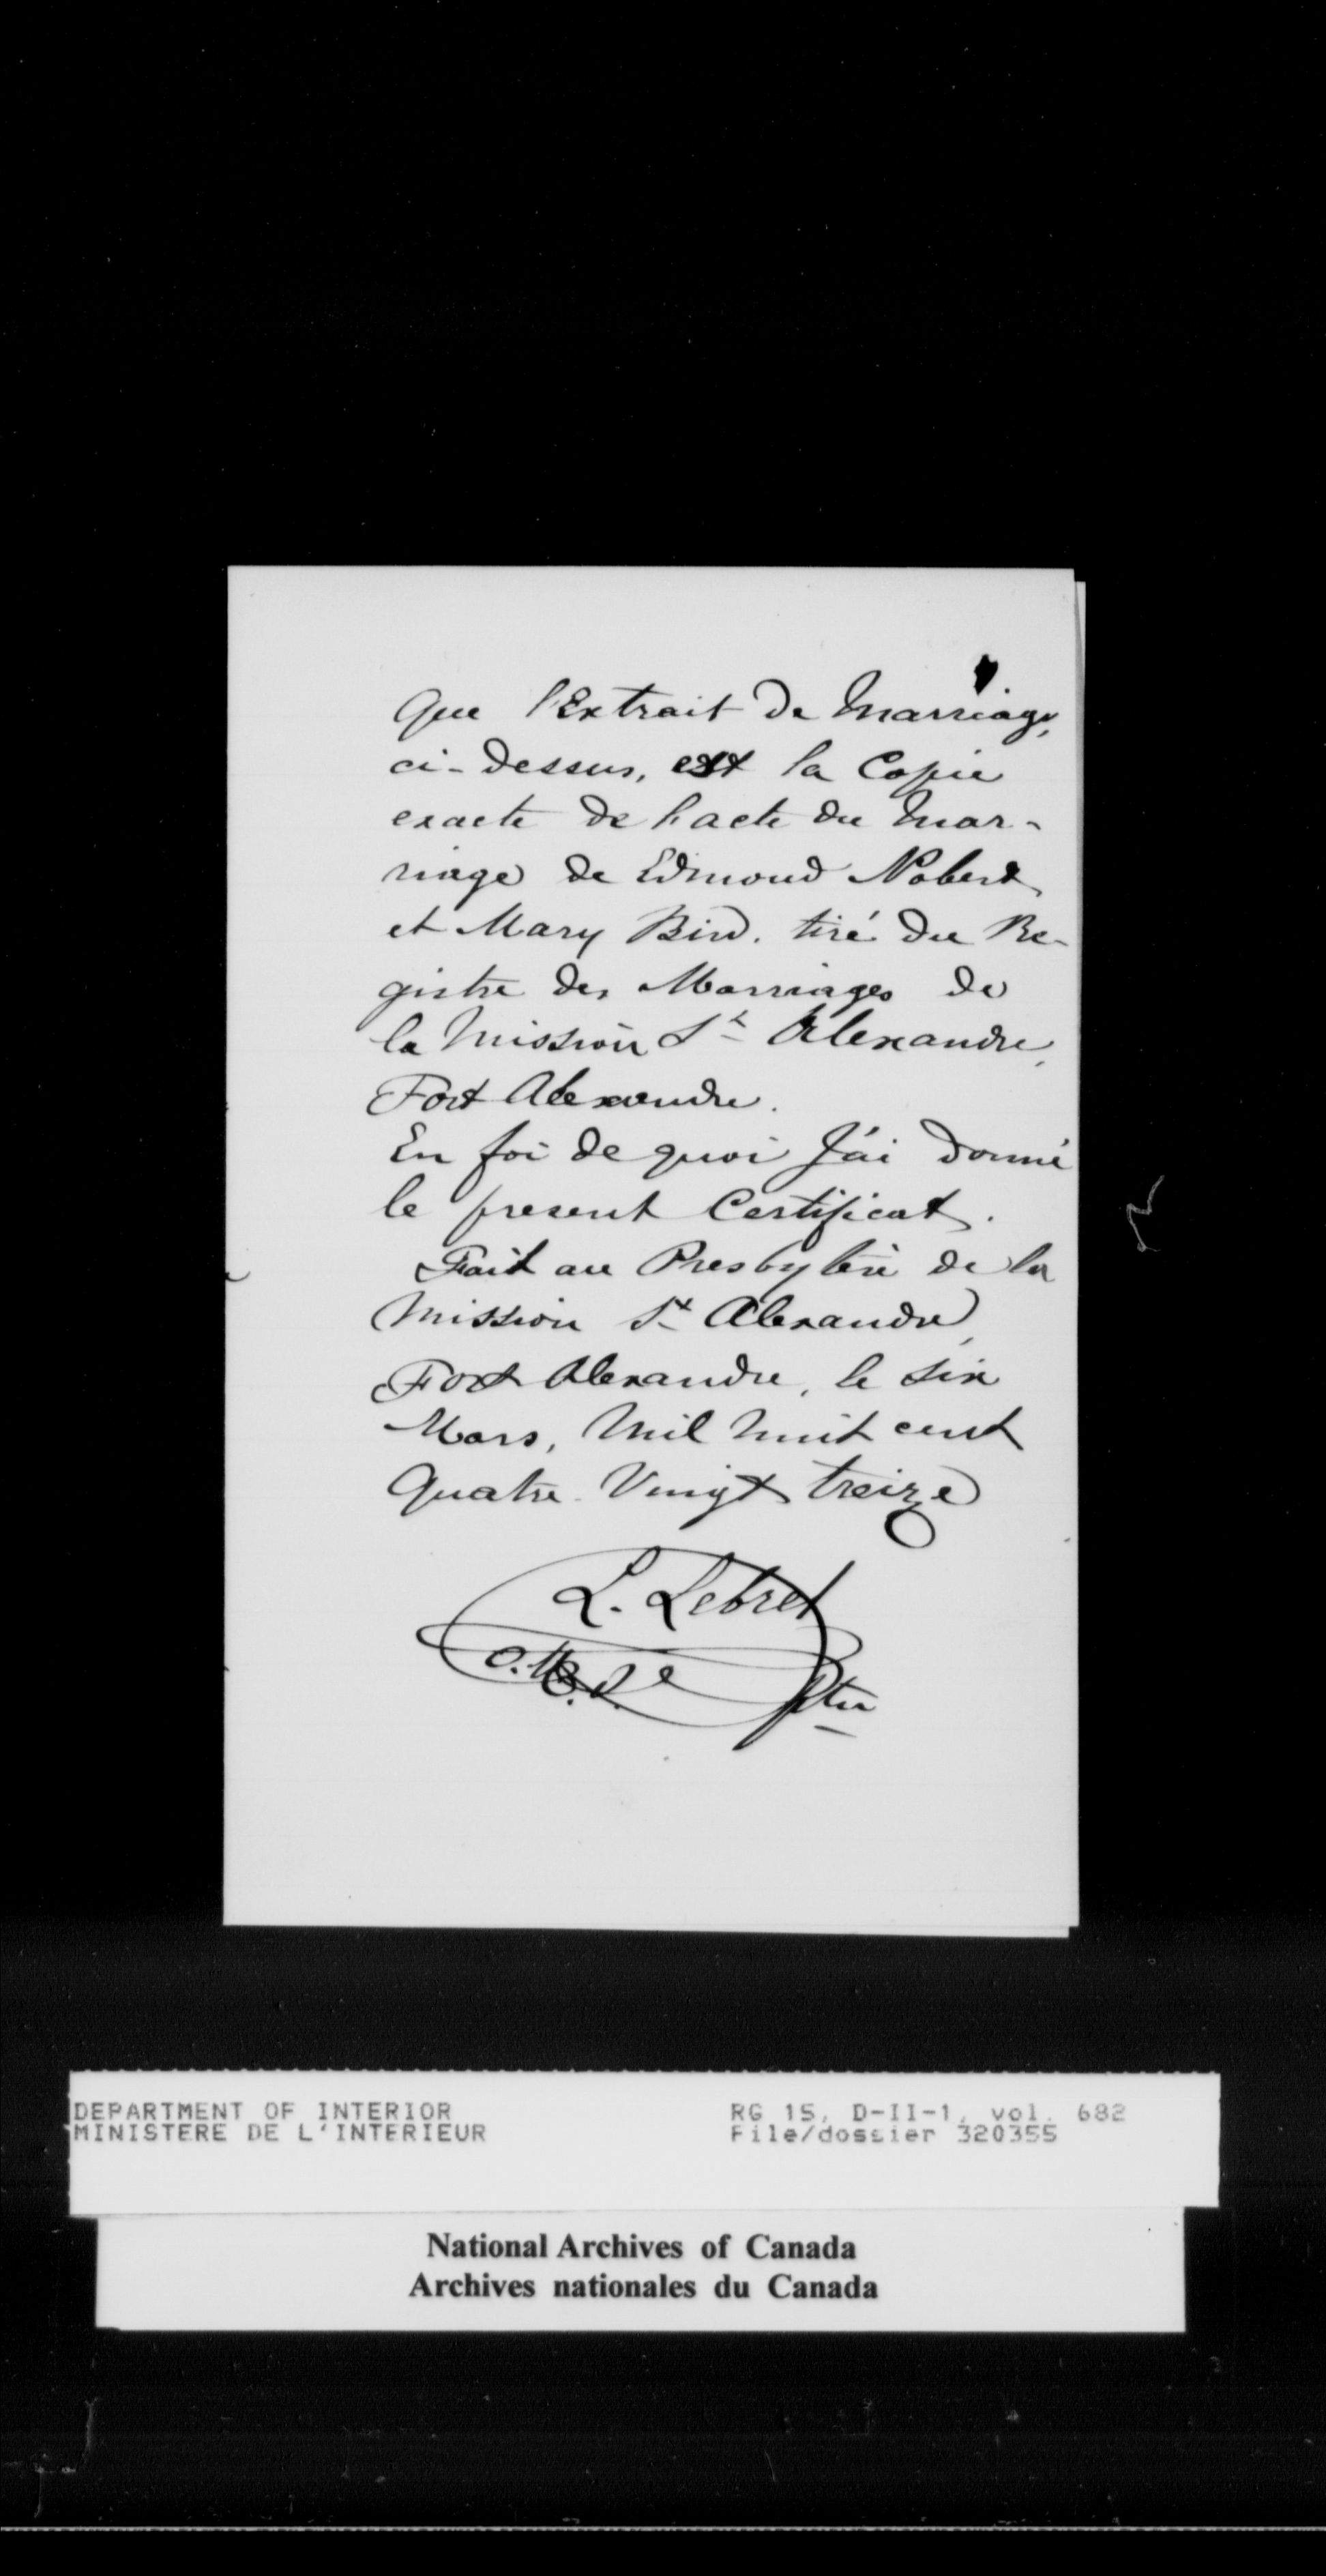 que l'Extrait de Marriage,
ci-dessus, est la Copie
exacte de l'acte du Mar-
riage de Edmond Nobert
et Mary Bird. tiré du Re-
gistre des Marriages de
la Mission St Alexandre,
Fort Alexandre.
En foi de quoi J'ai donné
le present Certificat.
Fait au Presbytère de la
Mission St Alexandre,
Fort Alexandre, le six
Mars, Mil huit cent
Quatre-Vingt treize
L. Lebret
O.M.I. Ptre
DEPARTMENT OF INTERIOR
MINISTERE DE L'INTERIEUR
RG 15, D-II-1, vol. 682
File/dossier 320355
National Archives of Canada
Archives nationales du Canada